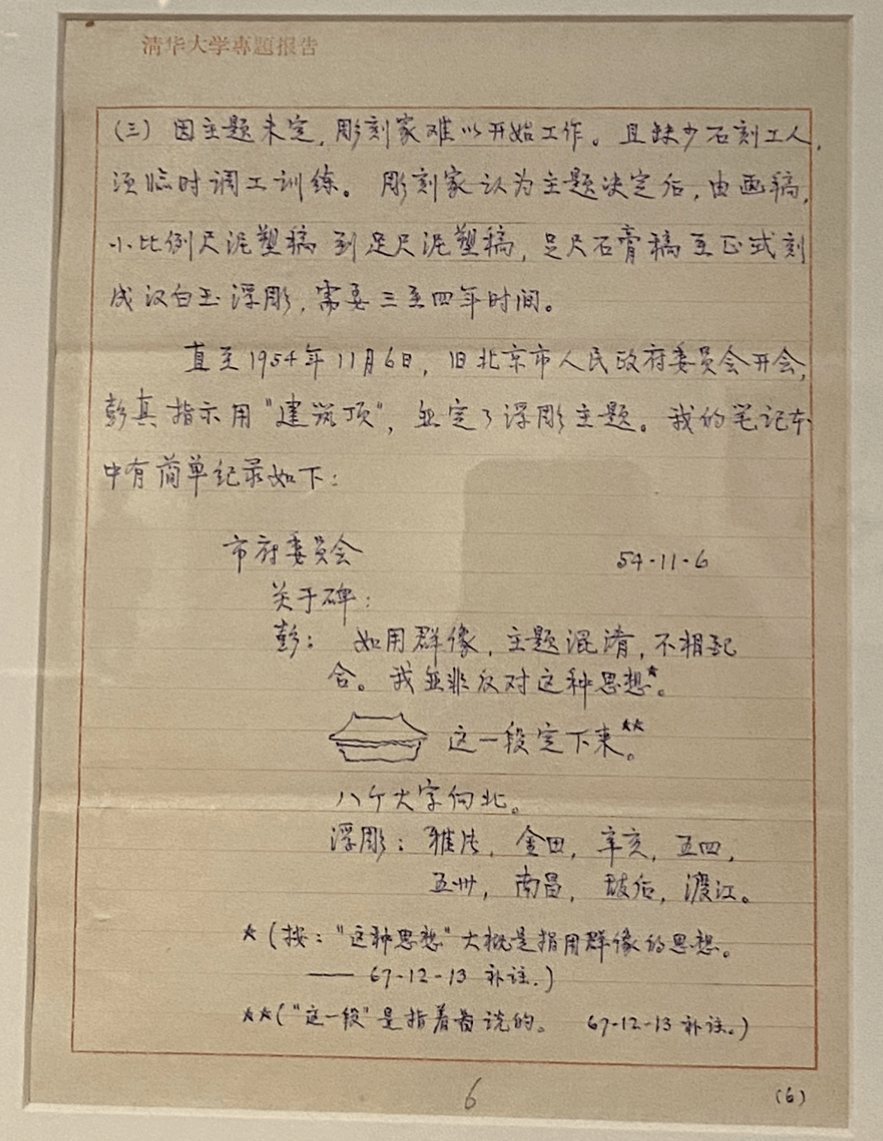 清华大学專題报告
(三) 因主题未定,彫刻家难以开始工作。且缺少石刻工人,
须临时调工训练。彫刻家认为主题决定后,由画稿,
小比例尺泥塑稿到足尺泥塑稿,足尺石膏稿至正式刻
成汉白玉浮彫,需要三至四年时间。
直至1954年11月6日,旧北京市人民政府委员会开会,
彭真指示用"建筑顶",並定了浮彫主题。我的笔记本
中有简单纪录如下:
市府委员会 54-11-6
关于碑:
彭: 如用群像,主题混淆,不相配
合。我並非反对这种思想★。
这一段定下来★★。
八个大字向北。
浮彫:雅片,金田,辛亥,五四,
五卅,南昌,敌后,渡江。
★(按:"这种思想"大概是指用群像的思想。
—— 67-12-13 补注.)
★★("这一段"是指着畵说的。 67-12-13 补注。)
6
(6)